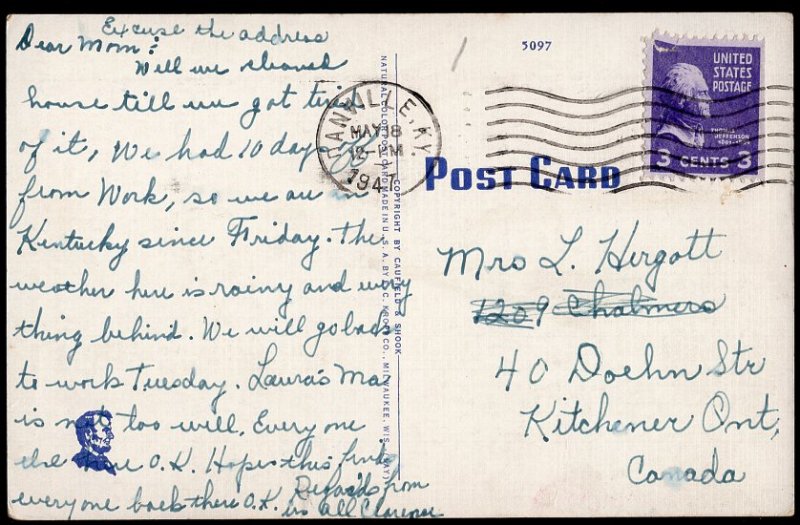 Excuse the address
Dear Mom:
Well we cleaned
house till we got tired
of it, We had 10 days
from Work, so we are in
Kentucky since Friday. The
weather here is rainy and every
thing behind. We will go back
to work Tuesday. Laura's Ma
is not too well. Every one
else here O.K. Hopes this finds
everyone back there O.K.
Regards from
us all Clarence
NATURAL COLOR POST CARD MADE IN U. S. A. BY E. C. KROPP CO., MILWAUKEE, WIS.
COPYRIGHT BY CAUFIELD & SHOOK
5097
DANVILLE, KY.
MAY 18
12- PM
1947
UNITED
STATES
POSTAGE
THOMAS
JEFFERSON
3 CENTS 3
POST CARD
Mrs L. Hergott
1209 Chalmers
40 Doehn Str
Kitchener Ont,
Canada